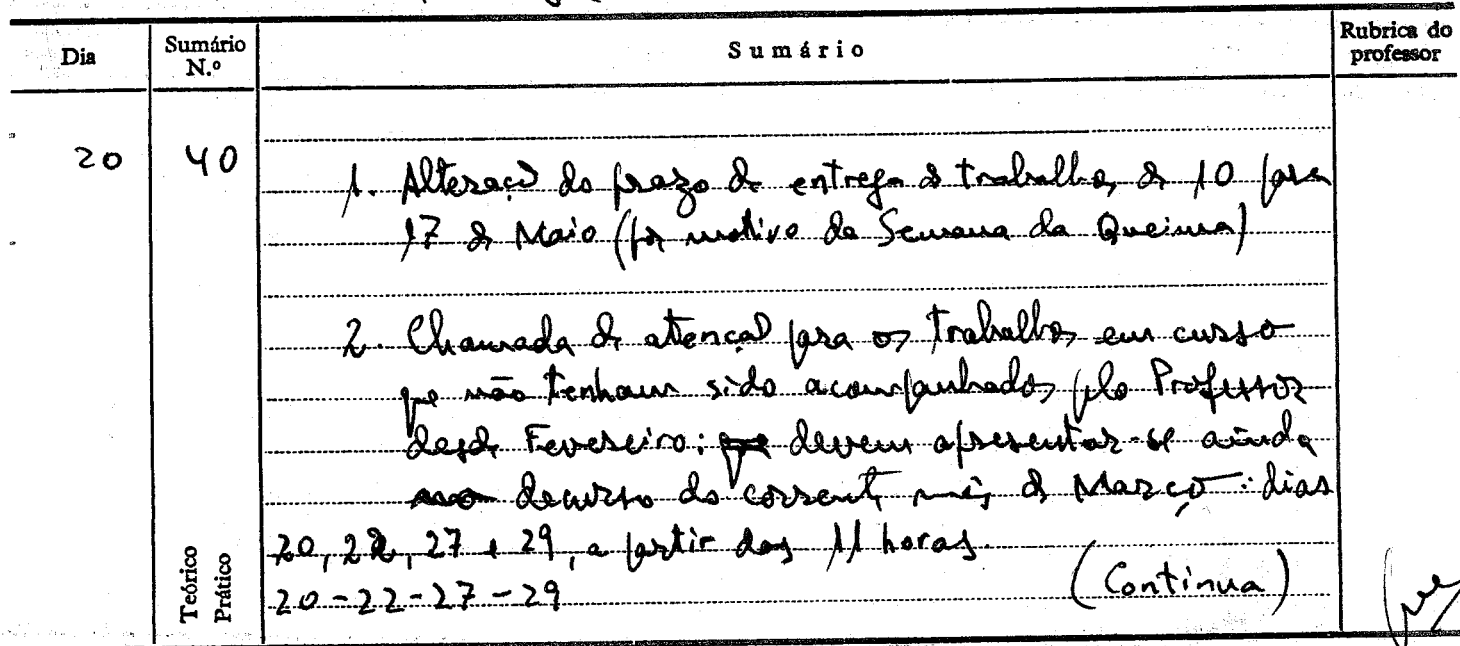 Dia
Sumário N.º
Sumário
Rubrica do professor
20
40
1. Alteração do prazo de entrega de trabalhos, de 10 para
17 de Maio (por motivo da Semana da Queima)
2. Chamada de atenção para os trabalhos em curso
que não tenham sido acompanhados pelo Professor
desde Fevereiro: devem apresentar-se ainda
decurso do corrente mês de Março: dias
20, 22, 27 e 29, a partir das 11 horas.
20-22-27-29
(Continua)
Teórico
Prático